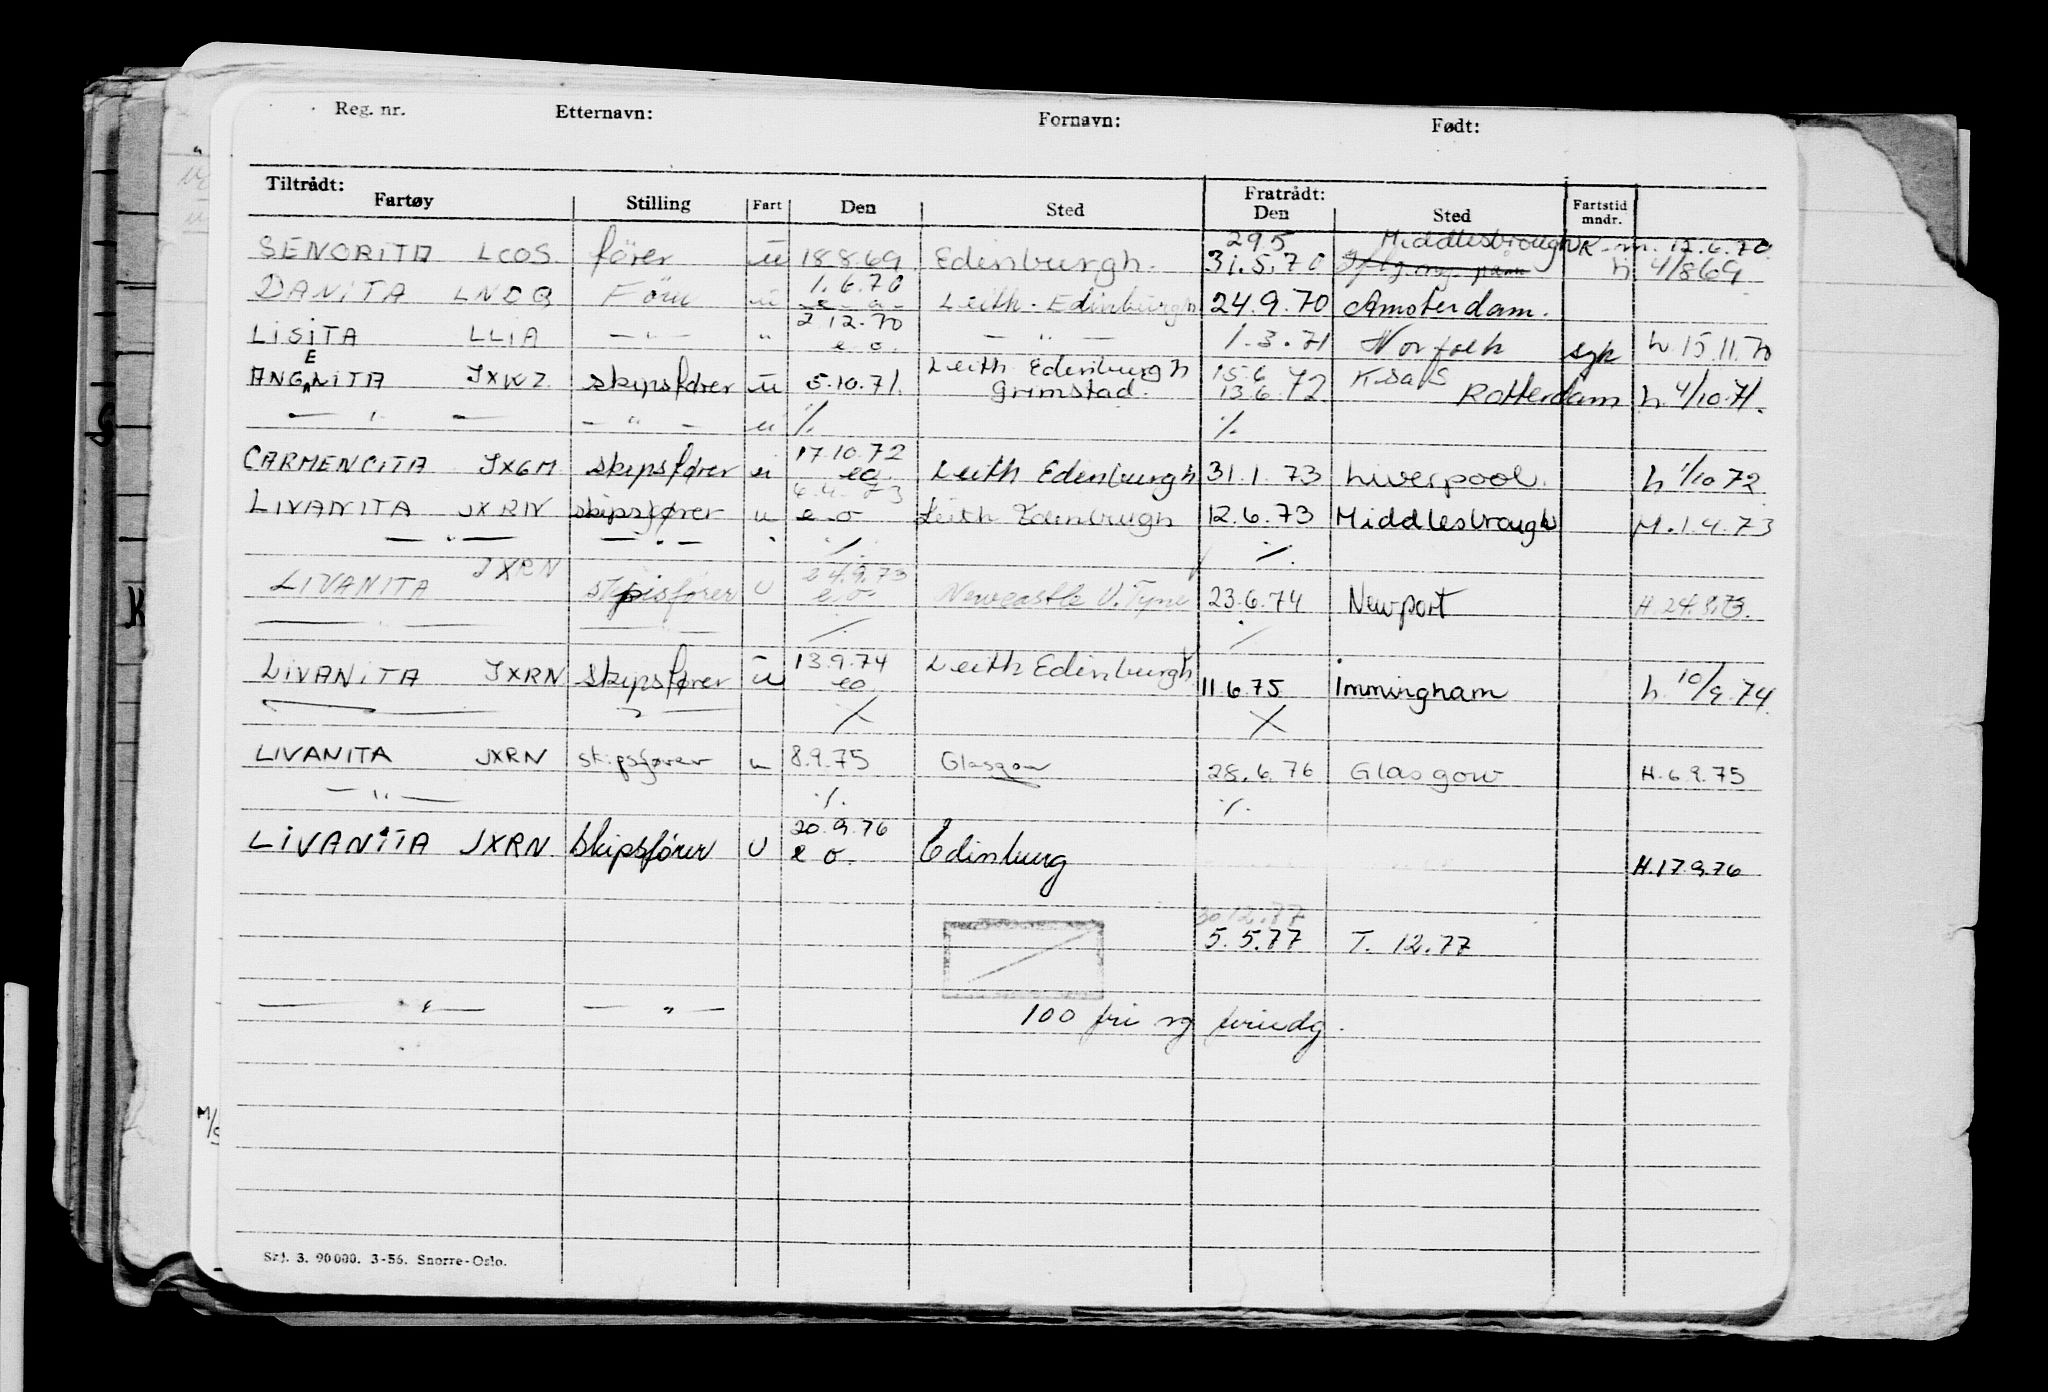 Reg. nr. Etternavn: Fornavn: Født:
Tiltrådt: Fratrådt:
Fartøy Stilling Fart Den Sted Den Sted Fartstid mndr.
29.5 Middlesbrough K. m. 12.6.70
SENORITA LCOS fører u 18.8.69 Edinburgh. 31.5.70 h 4/8 69
1.6.70
DANITA LNDQ Förer u e.o. Leith - Edinburgh 24.9.70 Amsterdam.
2.12.70
LISITA LLIA — " — " e.o. — " — 1.3.71 Norfolk syk h. 15.11.70
E Leith Edinburgh 15.6
ANGELITA JXKZ skipsfører u 5.10.71. Grimstad. 13.6.72 Rotterdam h. 4/10.71.
— " — — " — u ./. ./.
17.10.72
CARMENCITA JXGM skipsfører u eo. Leith Edinburgh 31.1.73 Liverpool. h 1/10 72
6.4.73
LIVANITA JXRN skipsfører u e o Leith Edinburgh 12.6.73 Middlesbrough M.1.4.73
— " — — " — " ./. ./.
JXRN 24.9.73
LIVANITA skipsfører u e.o Newcastle U. Tyne 23.6.74 Newport H.24.8.73.
— " — — " — ./. ./.
13.9.74 Leith Edinburgh
LIVANITA JXRN skipsfører u eo 11.6.75 Immingham h. 10/9.74
LIVANITA JXRN skipsfører u 8.9.75 Glasgow 28.6.76 Glasgow H.6.9.75
— " — ./. ./.
20.9.76
LIVANITA JXRN skipsfører U e o. Edinburg H.17.9.76
30.12.77
5.5.77 T. 12.77
— " — — " —
100 fri og feriedg.
Skj. 3. 90 000. 3-56. Snorre-Oslo.